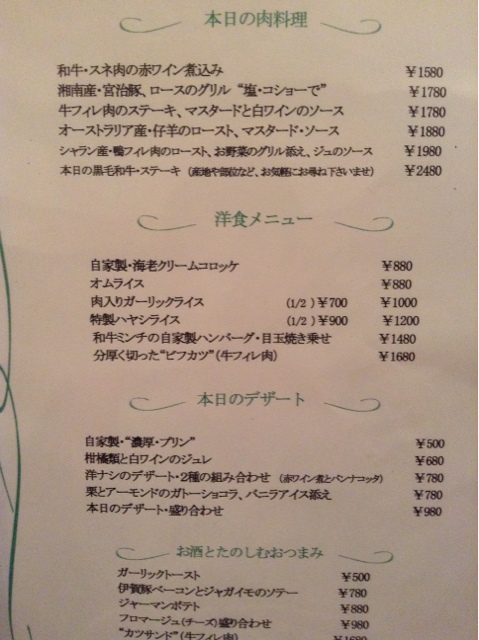 本日の肉料理
和牛・スネ肉の赤ワイン煮込み ￥1580
湘南産・宮治豚、ロースのグリル “塩・コショーで” ￥1780
牛フィレ肉のステーキ、マスタードと白ワインのソース ￥1780
オーストラリア産・仔羊のロースト、マスタード・ソース ￥1880
シャラン産・鴨フィレ肉のロースト、お野菜のグリル添え、ジュのソース ￥1980
本日の黒毛和牛・ステーキ（産地や部位など、お気軽にお尋ね下さいませ） ￥2480
洋食メニュー
自家製・海老クリームコロッケ ￥880
オムライス ￥880
肉入りガーリックライス (1/2 )￥700 ￥1000
特製ハヤシライス (1/2 )￥900 ￥1200
和牛ミンチの自家製ハンバーグ・目玉焼き乗せ ￥1480
分厚く切った“ビフカツ”（牛フィレ肉） ￥1680
本日のデザート
自家製・“濃厚・プリン” ￥500
柑橘類と白ワインのジュレ ￥680
洋ナシのデザート・2種の組み合わせ （赤ワイン煮とパンナコッタ） ￥780
栗とアーモンドのガトーショコラ、バニラアイス添え ￥780
本日のデザート・盛り合わせ ￥980
お酒とたのしむおつまみ
ガーリックトースト ￥500
伊賀豚ベーコンとジャガイモのソテー ￥780
ジャーマンポテト ￥880
フロマージュ(チーズ)盛り合わせ ￥980
“カツサンド”(牛フィレ肉) ￥1680